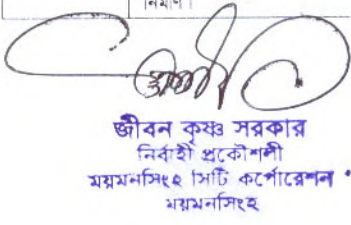 নির্মাণ।
জীবন কৃষ্ণ সরকার
নির্বাহী প্রকৌশলী
ময়মনসিংহ সিটি কর্পোরেশন
ময়মনসিংহ